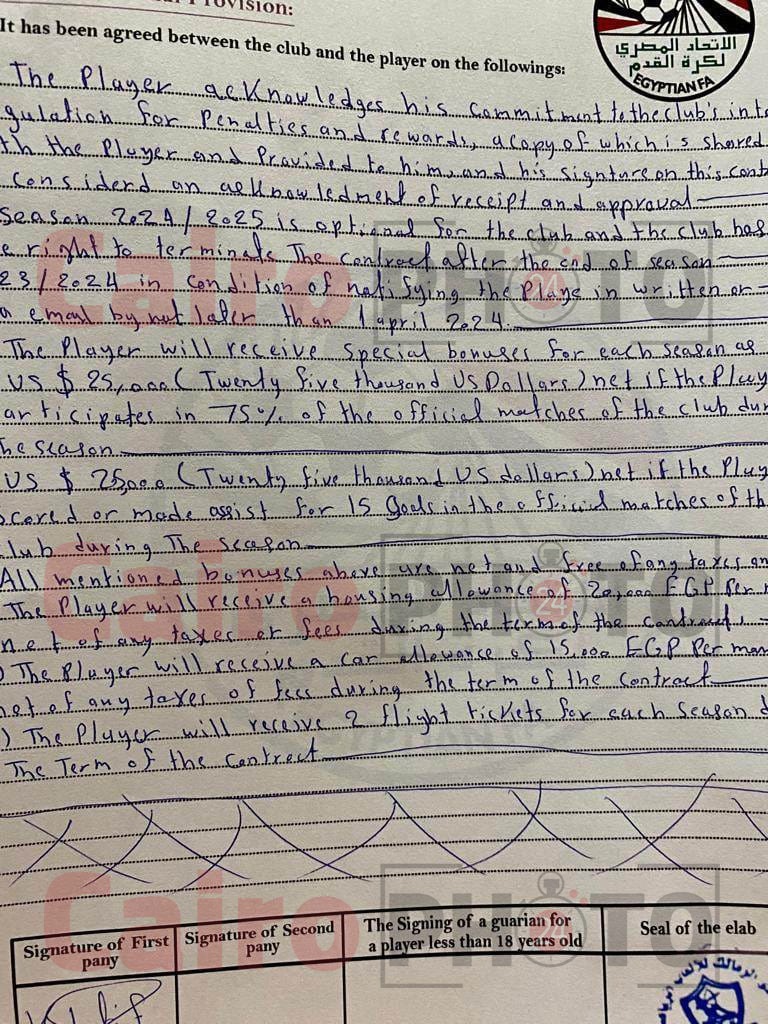 rovision:
It has been agreed between the club and the player on the followings:
الاتحاد المصري
لكرة القدم
EGYPTIAN FA
The Player acknowledges his commitment to the club's inte
gulation for Penalties and rewards, a copy of which is shared
th the Player and Provided to him, and his signature on this cont
considerd an acknowledment of receipt and approval
Season 2024/2025 is optional for the club and the club has
e right to terminate The contract after the end of season
23/2024 in condition of notifying the Playe in written or
a email by not later than 1 april 2024.
The Player will receive special bonuses for each season as
US $ 25,000 (Twenty five thousand US Dollars) net if the Play
articipates in 75% of the official matches of the club dur
he season
US $ 25,000 (Twenty five thousand US dollars) net if the Play
scored or made assist for 15 goals in the official matches of th
lub during The season
All mentioned bonuses above are net and free of any taxes an
The Player will receive a housing allowance of 20,000 EGP Per m
net of any taxes or fees during the term of the contract.
) The Player will receive a car allowance of 15,000 EGP Per mon
net of any taxes of fees during the term of the contract
) The Player will receive 2 flight tickets for each season d
The Term of the contract
Cairo PHOTO
24
Cairo PHOTO
24
Cairo PHOTO
24
Signature of First pany
Signature of Second pany
The Signing of a guarian for
a player less than 18 years old
Seal of the elab